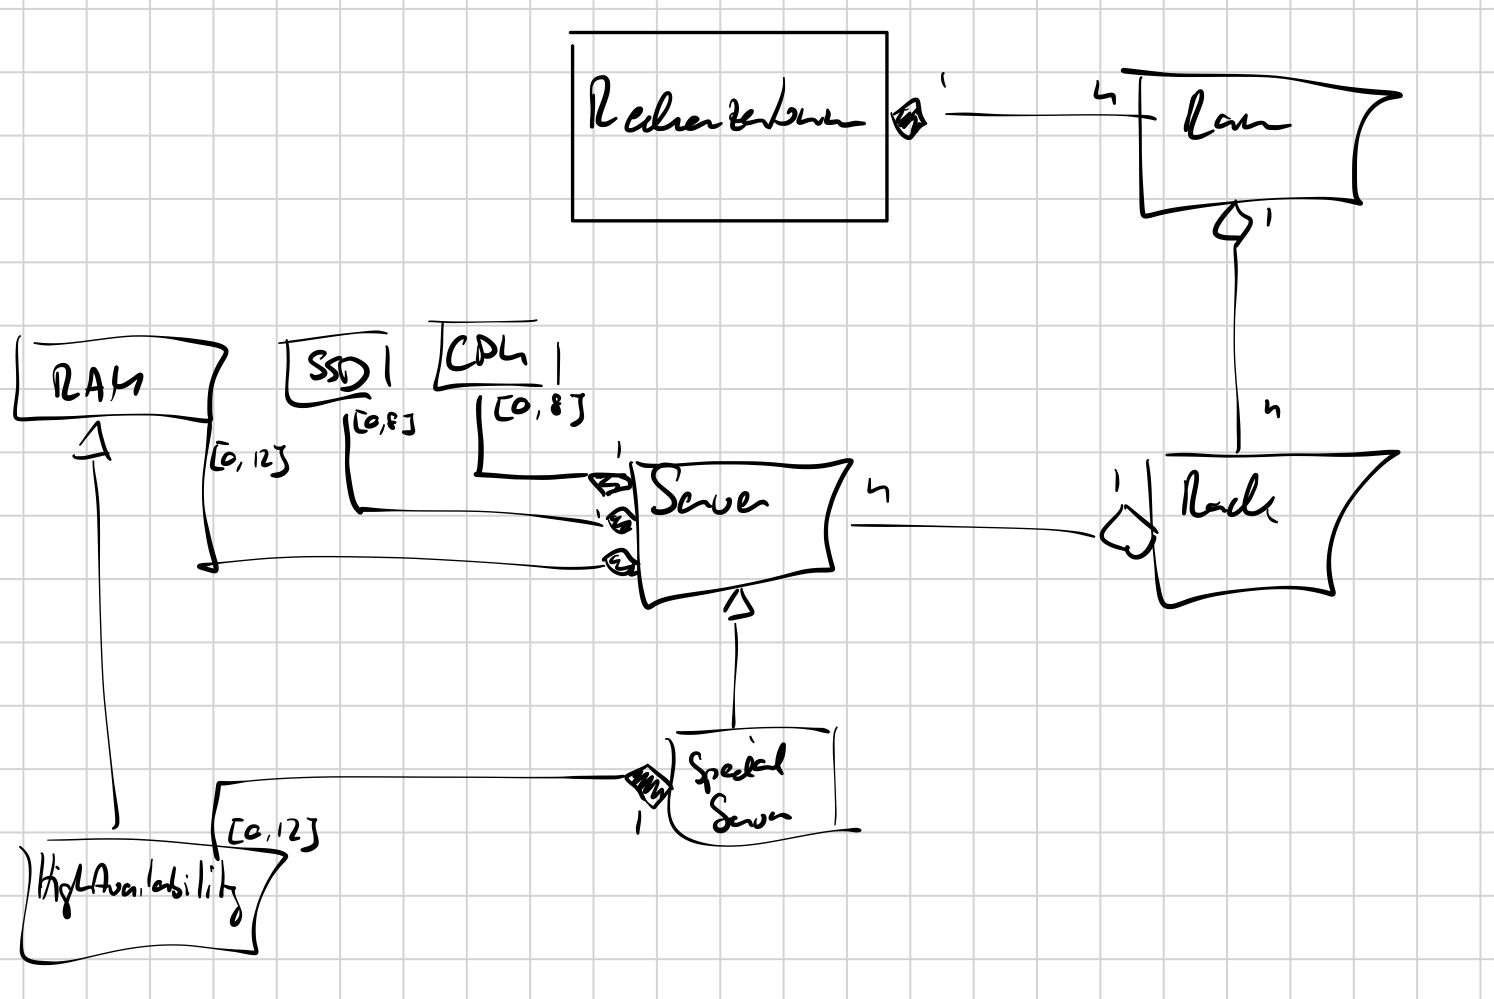 Rechenzentrum
1
n
Raum
1
n
RAM
SSD
CPU
[0,8]
[0,8]
[0,12]
1
1
Server
n
1
Rack
Special
Server
1
[0,12]
HighAvailability